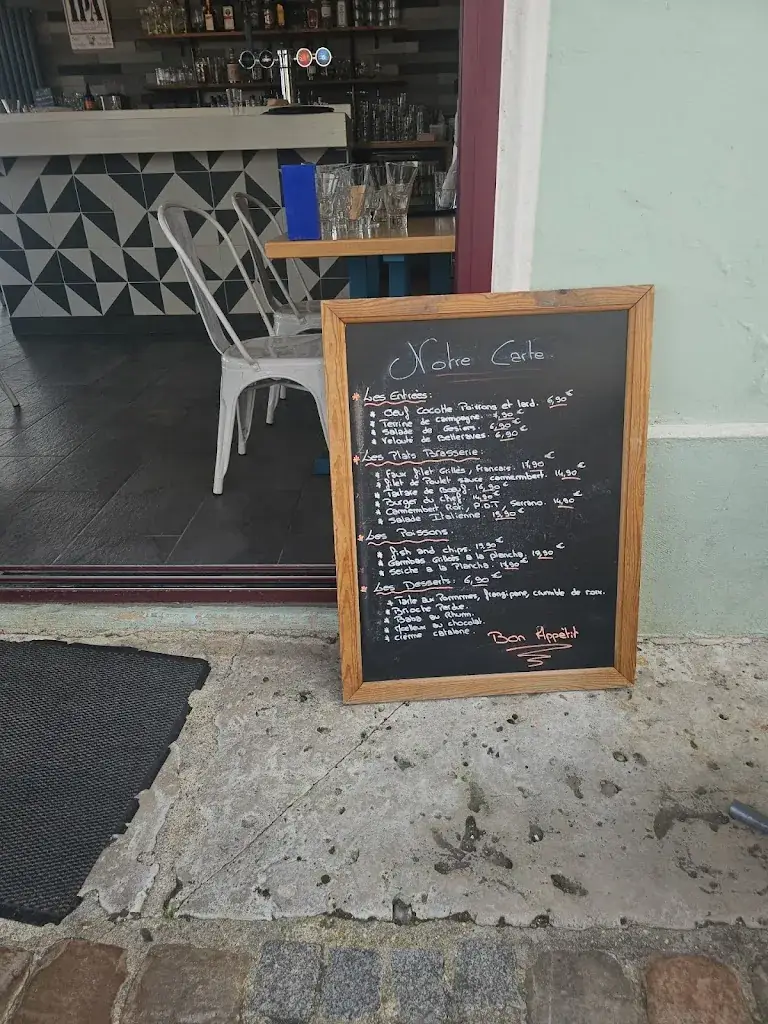 IPA
Notre Carte
* Les Entrées:
* Oeuf Cocotte Poirrons et lard. 6,90€
* Terrine de campagne. 7,90€
* Salade de Gésiers. 6,90€
* Velouté de Betteraves. 6,90
* Les Plats Brasserie: €
* Faux filet Grillés, Francais. 17,90
* filet de Poulet sauce camembert. 14,90€
* Tartare de Bœuf. 16,90€
* Burger du chef. 14,90€
* Camembert Roti, P.D.T, Serrano. 14,90€
* Salade Italienne. 13,90€
* Les Poissons:
* fish and chips. 13,90€
* Gambas Grillées a la plancha. 19,90€
* Seiche a la Plancha. 17,90€
* Les Desserts: 6,90€
* Tarte aux Pommes, frangipane, crumble de noix.
* Brioche Perdue.
* Baba au Rhum.
* Moelleux au chocolat.
* Crème catalane.
Bon Appétit